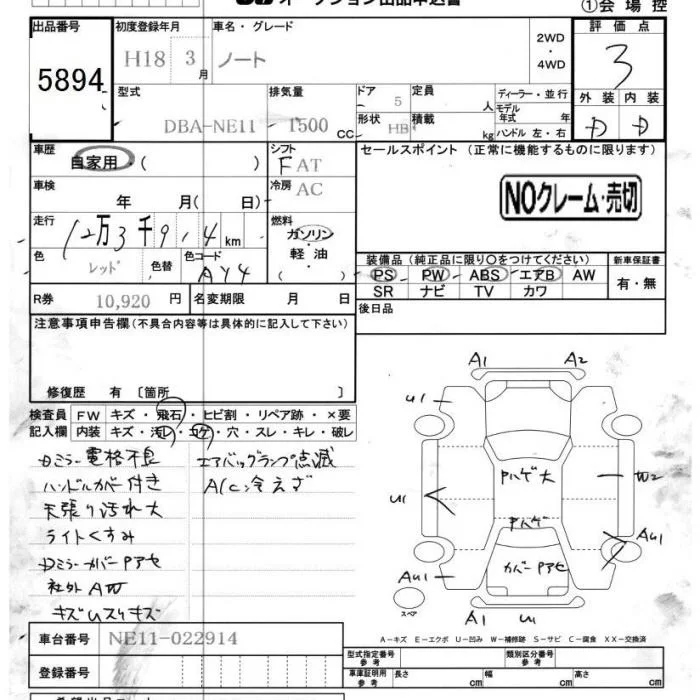 オークション出品申込書
①会場控
出品番号
5894
初度登録年月
H18 3月
車名・グレード
ノート
2WD
・
4WD
評価点
3
型式
DBA-NE11
排気量
1500 CC
ドア
5
形状
HB
定員
人
積載
kg
ディーラー・並行
モデル年式 年
ハンドル 左・右
外装 内装
D D
車歴
自家用・( )
シフト
FAT
セールスポイント (正常に機能するものに限ります)
NOクレーム・売切
車検
年 月( 日)
冷房
AC
走行
12万3千9 14km
燃料
ガソリン
・
軽油
・
( )
色
レッド
色替
色コード
AY4
装備品(純正品に限り○をつけてください)
PS・PW・ABS・エアB・AW
SR ナビ TV カワ
新車保証書
有・無
R券 10,920 円
名変期限 月 日
後日品
注意事項申告欄(不具合内容等は具体的に記入して下さい)
修復歴 有 〔箇所 〕
検査員記入欄
FW キズ・飛石・ヒビ割・リペア跡・×要
内装 キズ・汚レ・コゲ・穴・スレ・キレ・破レ
Dミラー電格不良
エアバッグランプ点滅
ハンドルカバー付き
A/C冷えず
天張り汚れ大
ライトくすみ
Dミラーカバー Pアセ
社外AW
キズUスリキズ
A1 A2
U1
Pハゲ大
U1
W2
Pハゲ
AU1
カバーPアセ
AU1
A1 U1
スペア
A-キズ E-エクボ U-凹み W-補修跡 S-サビ C-腐食 XX-交換済
車台番号 NE11-022914
登録番号
型式指定番号 参考
類別区分番号 参考
車庫証明用 参考
長さ cm
幅 cm
高さ cm